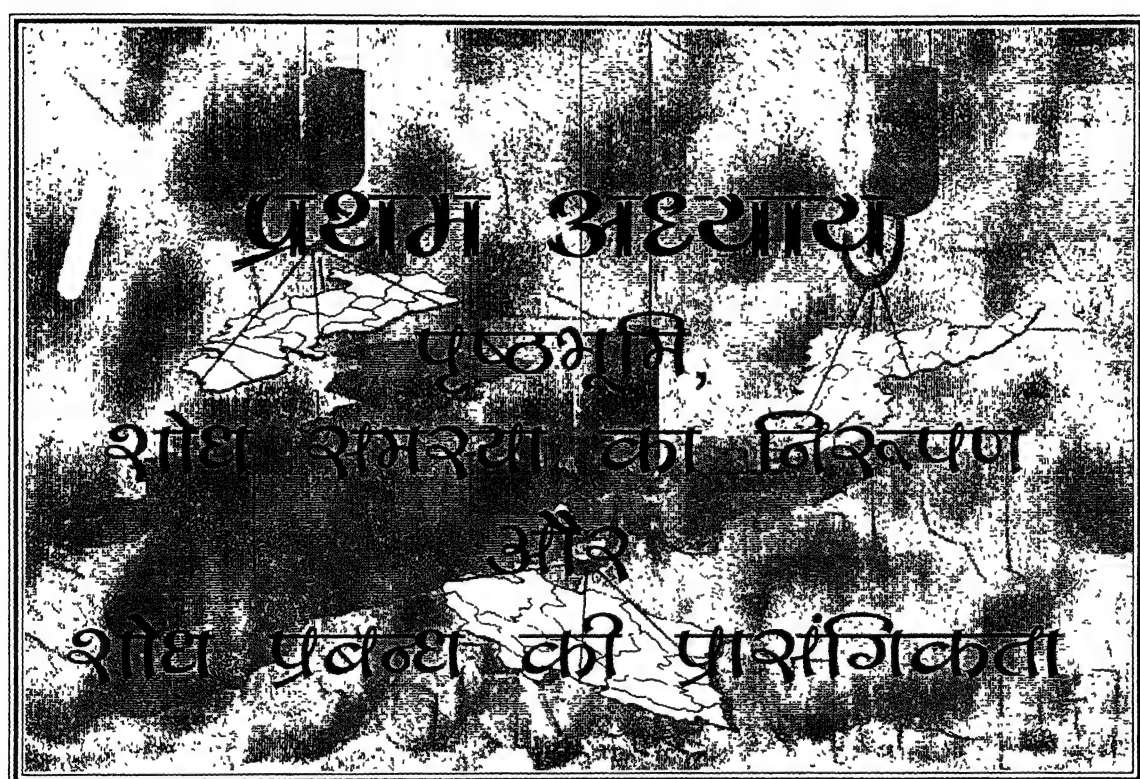 प्रथम अध्याय
पृष्ठभूमि,
शोध समस्या का निरूपण
और
शोध प्रबन्ध की प्रासंगिकता